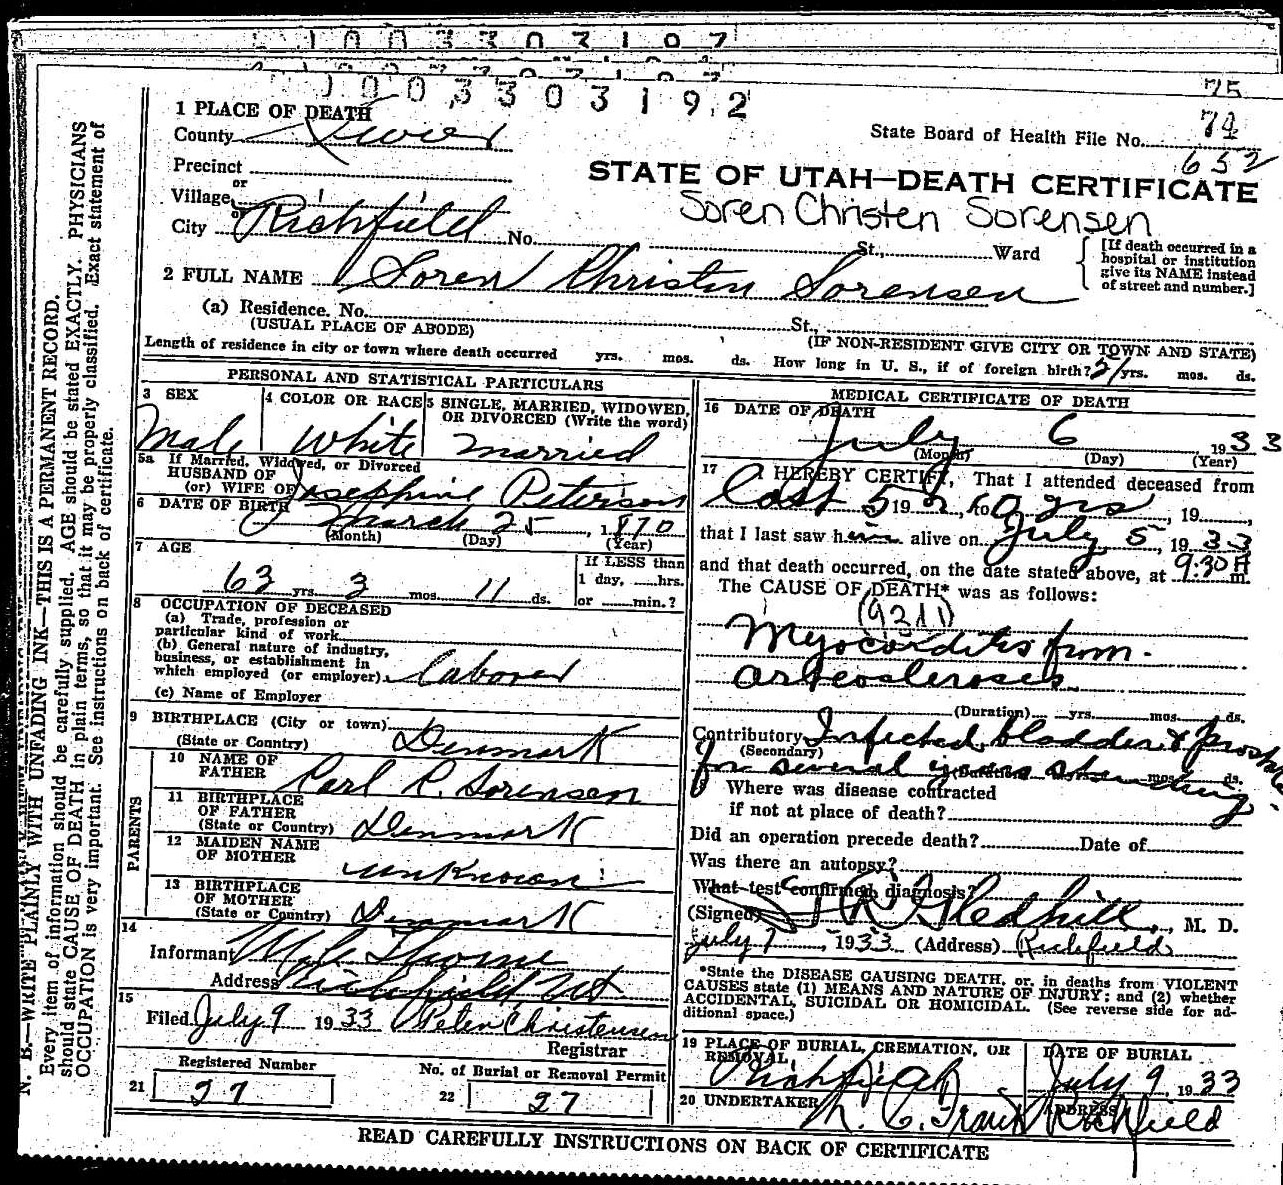 1003303192
75
74
652
1 PLACE OF DEATH
County Sevier
State Board of Health File No.
Precinct
or
Village
or
City Richfield No. St., Ward
STATE OF UTAH—DEATH CERTIFICATE
Soren Christen Sorensen
[If death occurred in a
hospital or institution
give its NAME instead
of street and number.]
2 FULL NAME Soren Christen Sorensen
(a) Residence. No. St.,
(USUAL PLACE OF ABODE) (IF NON-RESIDENT GIVE CITY OR TOWN AND STATE)
Length of residence in city or town where death occurred yrs. mos. ds. How long in U. S., if of foreign birth? 51 yrs. mos. ds.
PERSONAL AND STATISTICAL PARTICULARS
3 SEX 4 COLOR OR RACE 5 SINGLE, MARRIED, WIDOWED,
OR DIVORCED (Write the word)
Male White Married
5a If Married, Widowed, or Divorced
HUSBAND OF
(or) WIFE OF Josephine Peterson
6 DATE OF BIRTH March 25, 1870
(Month) (Day) (Year)
7 AGE
63 yrs. 3 mos. 11 ds.
If LESS than
1 day, hrs.
or min.?
8 OCCUPATION OF DECEASED
(a) Trade, profession or
particular kind of work
(b) General nature of industry,
business, or establishment in
which employed (or employer) Laborer
(c) Name of Employer
9 BIRTHPLACE (City or town)
(State or Country) Denmark
PARENTS
10 NAME OF
FATHER Parl P. Sorensen
11 BIRTHPLACE
OF FATHER
(State or Country) Denmark
12 MAIDEN NAME
OF MOTHER unknown
13 BIRTHPLACE
OF MOTHER
(State or Country) Denmark
14
Informant Thorne
Address Richfield Ut
15
Filed July 9 1933 Peter Christensen
Registrar
Registered Number No. of Burial or Removal Permit
21 27 22 27
MEDICAL CERTIFICATE OF DEATH
16 DATE OF DEATH
July 6 1933
(Month) (Day) (Year)
17 I HEREBY CERTIFY, That I attended deceased from
last 5 19 to yrs, 19
that I last saw him alive on July 5, 1933
and that death occurred, on the date stated above, at 9:30 A m.
The CAUSE OF DEATH* was as follows:
(9211)
Myocorditis from
arteoslerosis
(Duration) yrs. mos. ds.
Contributory Infected bladder &
(Secondary)
for several years standing
(Duration) yrs. mos. ds.
Where was disease contracted
if not at place of death?
Did an operation precede death? Date of
Was there an autopsy?
What test confirmed diagnosis?
(Signed) Gledhill, M. D.
July 7, 1933 (Address) Richfield
*State the DISEASE CAUSING DEATH, or, in deaths from VIOLENT
CAUSES state (1) MEANS AND NATURE OF INJURY; and (2) whether
ACCIDENTAL, SUICIDAL OR HOMICIDAL. (See reverse side for ad-
ditional space.)
19 PLACE OF BURIAL, CREMATION, OR
REMOVAL
Richfield
DATE OF BURIAL
July 9 1933
20 UNDERTAKER
ADDRESS
Richfield
READ CAREFULLY INSTRUCTIONS ON BACK OF CERTIFICATE
N. B.—WRITE PLAINLY WITH UNFADING INK—THIS IS A PERMANENT RECORD.
Every item of information should be carefully supplied. AGE should be stated EXACTLY. PHYSICIANS
should state CAUSE OF DEATH in plain terms, so that it may be properly classified. Exact statement of
OCCUPATION is very important. See instructions on back of certificate.